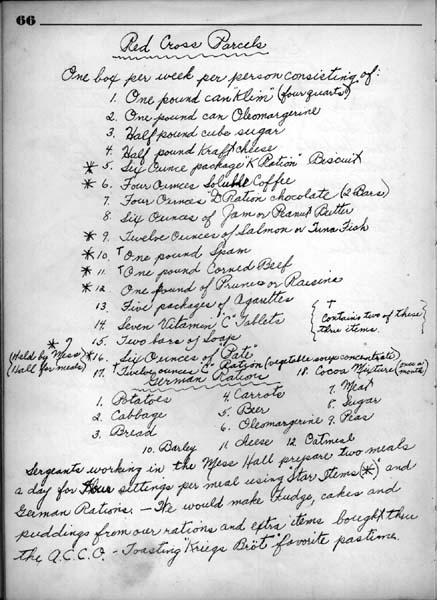 66
Red Cross Parcels
One box per week per person consisting of:
1. One pound can "Klim" (four quarts)
2. One pound can Oleomargerine
3. Half pound cube sugar
4. Half pound Kraft cheese
* 5. Six Ounce package "K Ration" Biscuit
* 6. Four Ounces Soluble Coffee
7. Four Ounces "D" Ration chocolate (2 Bars)
8. Six Ounces of Jam or Peanut Butter
* 9. Twelve Ounces of Salmon or Tuna Fish
* 10. † One pound Spam
* 11. † One pound Corned Beef
* 12. One pound of Prunes or Raisins
13. Five packages of Cigarettes
14. Seven Vitamin "C" Tablets
{ † Contains two of these three items. }
15. Two bars of Soap
* ?
(Held by Mess Hall for meals)
* 16. Six Ounces of "Pate"
17. † Twelve ounces "C" Ration (vegetable soup concentrate) 18. Cocoa Mixture (once a month)
German Rations
1. Potatoes 4. Carrots 7. Meat
2. Cabbage 5. Beer 8. Sugar
3. Bread 6. Oleomargerine 9. Peas
10. Barley 11. Cheese 12. Oatmeal
Sergeants working in the Mess Hall prepare two meals
a day for four sittings per meal using "Star Items" (*) and
German Rations. — We would make Fudge, cakes and
puddings from our rations and extra items bought thru
the A.C.C.O. - Toasting "Kriegs Bröt" favorite pastime.